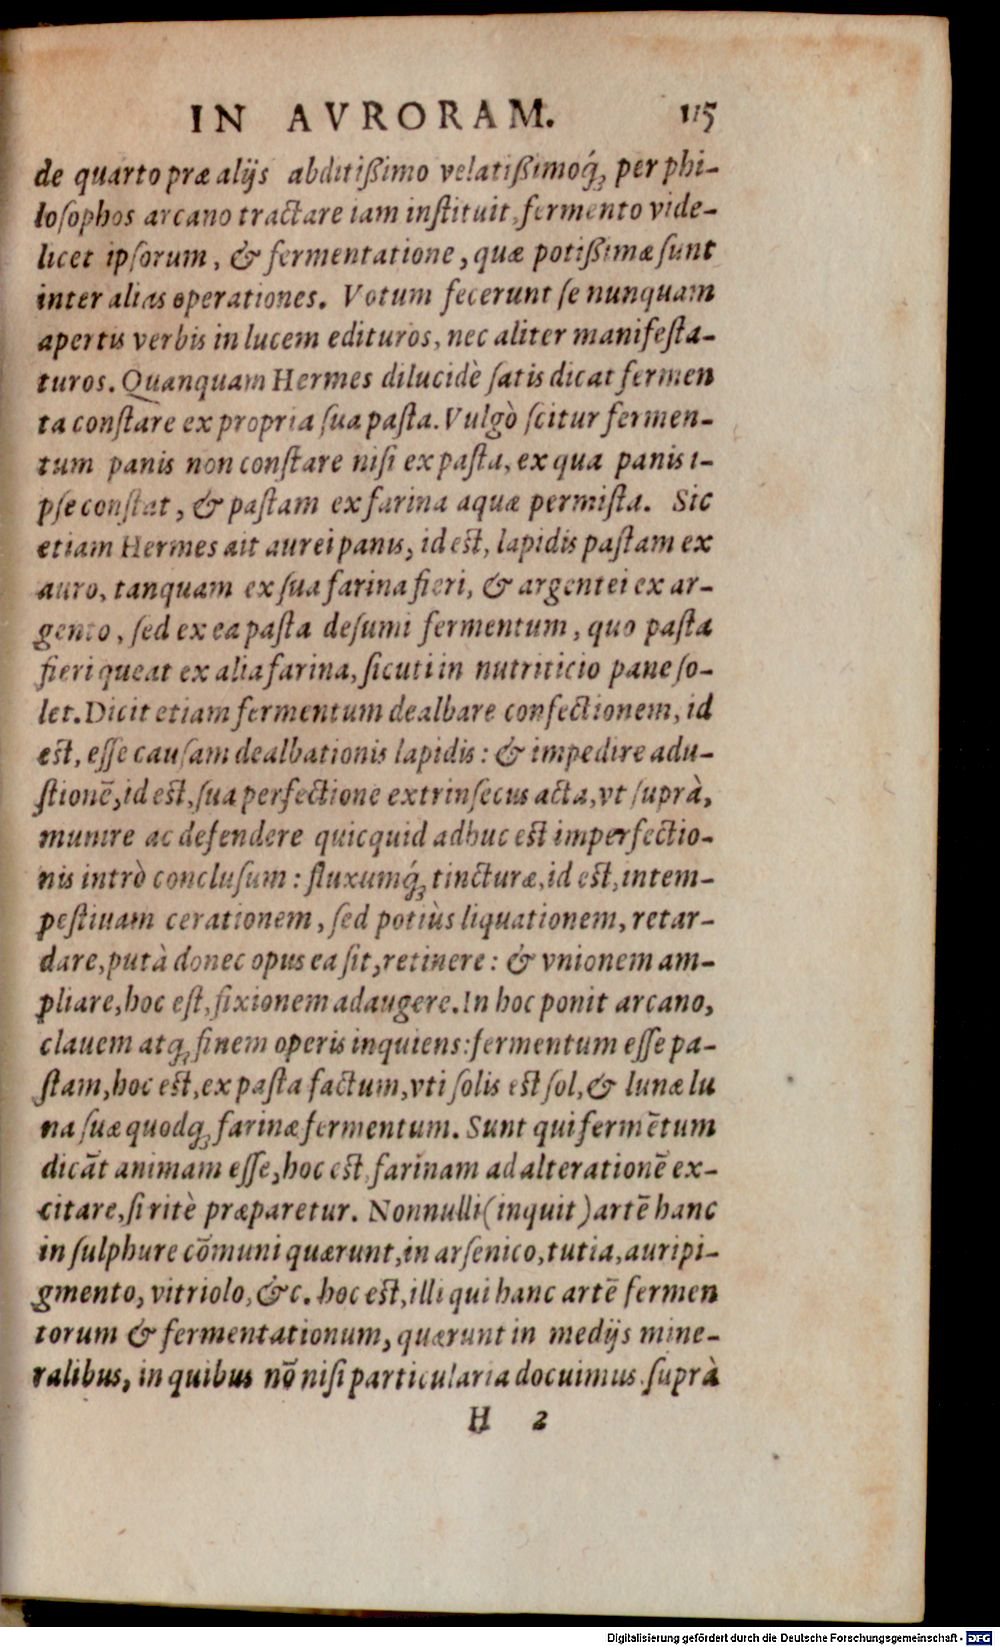 IN AVRORAM. 115
de quarto præ alijs abditißimo velatißimoq́; per phi-
loſophos arcano tractare iam inſtituit, fermento vide-
licet ipſorum, & fermentatione, quæ potißimæ ſunt
inter alias operationes. Votum fecerunt ſe nunquam
apertis verbis in lucem edituros, nec aliter manifeſta-
turos. Quanquam Hermes dilucidè ſatis dicat fermen
ta conſtare ex propria ſua paſta. Vulgò ſcitur fermen-
tum panis non conſtare niſi ex paſta, ex qua panis i-
pſe conſtat, & paſtam ex farina aquæ permiſta. Sic
etiam Hermes ait aurei panis, id eſt, lapidis paſtam ex
auro, tanquam ex ſua farina fieri, & argentei ex ar-
gento, ſed ex ea paſta deſumi fermentum, quo paſta
fieri queat ex alia farina, ſicuti in nutriticio pane ſo-
let. Dicit etiam fermentum dealbare confectionem, id
eſt, eſſe cauſam dealbationis lapidis: & impedire adu-
ſtionẽ, id eſt, ſua perfectione extrinſecus acta, vt ſuprà,
munire ac defendere quicquid adhuc eſt imperfectio-
nis intrò concluſum: fluxumq́; tincturæ, id eſt, intem-
peſtiuam cerationem, ſed potiùs liquationem, retar-
dare, putà donec opus ea ſit, retinere: & vnionem am-
pliare, hoc eſt, fixionem adaugere. In hoc ponit arcano,
clauem atq; finem operis inquiens: fermentum eſſe pa-
ſtam, hoc eſt, ex paſta factum, vti ſolis eſt ſol, & lunæ lu
na ſuæ quodq; farinæ fermentum. Sunt qui fermẽtum
dicãt animam eſſe, hoc eſt, farinam ad alterationẽ ex-
citare, ſi ritè præparetur. Nonnulli (inquit) artẽ hanc
in ſulphure cõmuni quærunt, in arſenico, tutia, auripi-
gmento, vitriolo, &c. hoc eſt, illi qui hanc artẽ fermen
torum & fermentationum, quærunt in medijs mine-
ralibus, in quibus nõ niſi particularia docuimus ſuprà
H 2
Digitalisierung gefördert durch die Deutsche Forschungsgemeinschaft - DFG